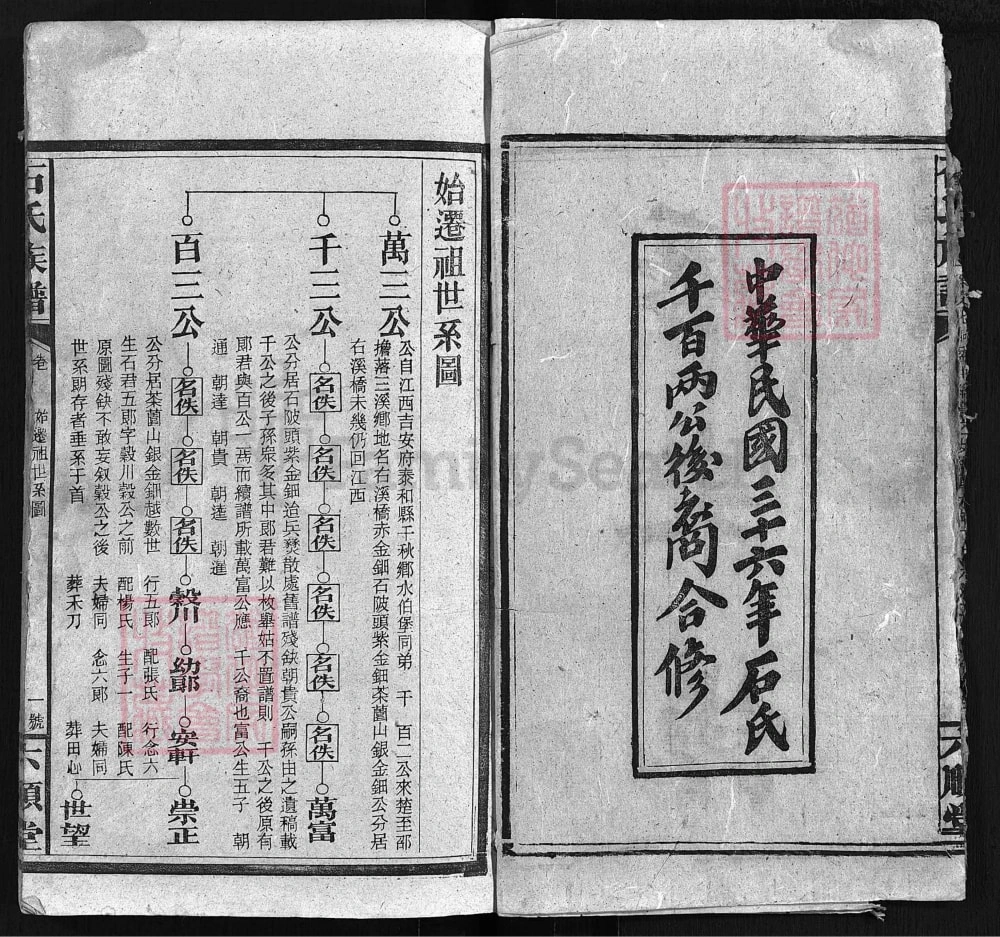 中華民國三十六年石氏
千百兩公後裔合修
六順堂
始遷祖世系圖
萬三公
公自江西吉安府泰和縣千秋鄉水伯堡同弟 千 百二公來楚至邵
擔落三溪鄉地名右溪橋赤金鈿石陂頭紫金鈿茶薗山銀金鈿公分居
右溪橋未幾仍回江西
千三公
名佚
名佚
名佚
名佚
名佚
名佚
萬富
公分居石陂頭紫金鈿造兵燹散處舊譜殘缺朝貴公嗣孫由之遺稿載
千公之後子孫衆多其中郎君難以枚舉姑不置譜則 千公之後原有
郎君與百公一焉而續譜所載萬富公應 千公裔也富公生五子 朝
通 朝達 朝貴 朝逵 朝進
百三公
名佚
名佚
名佚
穀川
幼郎
安軒
崇正
世望
公分居茶薗山銀金鈿越數世 行五郎 配張氏 行念六
生石君五郎字穀川穀公之前 配楊氏 生子一 配陳氏
原圖殘缺不敢妄叙穀公之後 夫婦同 念六郎 夫婦同
世系明存者垂系于首 葬禾刀 葬田心
石氏族譜
卷
始遷祖世系圖
一號
六順堂